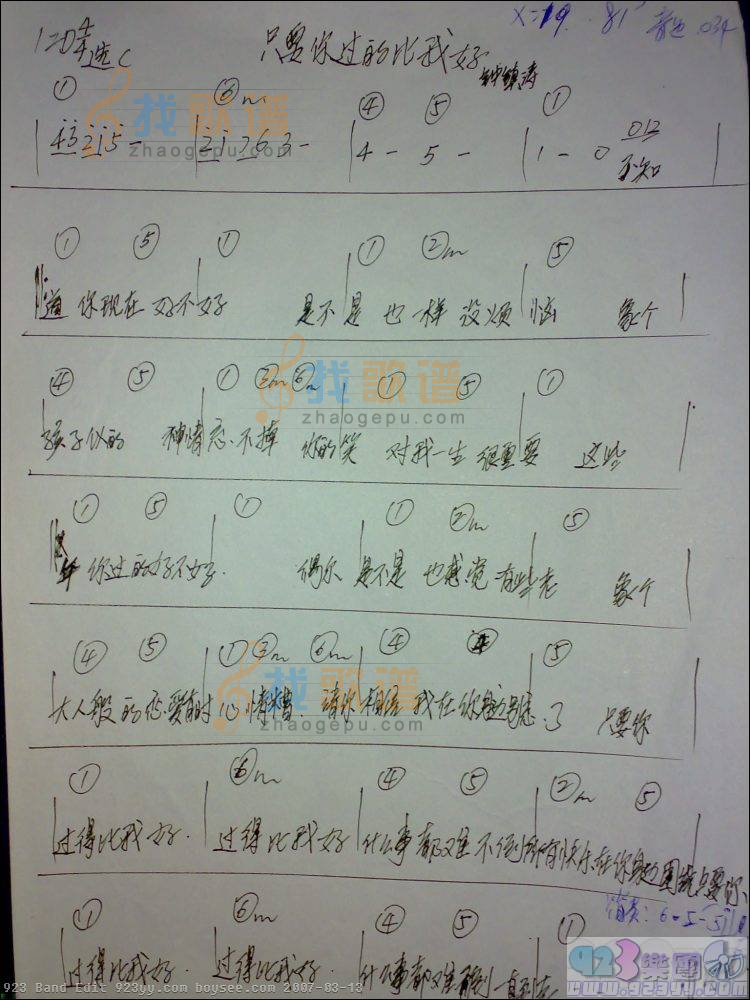 1=D 4/4 选C
只要你过的比我好
钟镇涛
X=19. 81 音色 034
① ⑥m ④ ⑤ ①
4 - 5 - | 1 - 0 012
找歌谱
zhaogepu.com
不知
① ⑤ ① ① ②m ⑤
道 你现在 好不好 是不是 也一样 没烦恼 象个
④ ⑤ ① ③m ⑥m ① ⑤ ①
找歌谱
zhaogepu.com
孩子似的 神情忘不掉 你的笑 对我一生 很重要 这些
① ⑤ ① ① ②m ⑤
年 你过的好不好. 偶尔 是不是 也感觉 有些老 象个
④ ⑤ ① ③m ⑥m ④ ④ ⑤
找歌谱
zhaogepu.com
大人般 的恋爱有时心情糟. 请你相信 我在你身边别忘了 只要你
① ⑥m ④ ⑤ ②m ⑤
过得比我好. 过得比我好 什么事都难不倒 所有快乐在你身边围绕 只要你
① ⑥m ④ ⑤ ①
过得比我好. 过得比我好. 什么事都难不倒 一直到老
923樂團
www.923yy.com
923 Band Edit 923yy.com boysee.com 2007-03-13